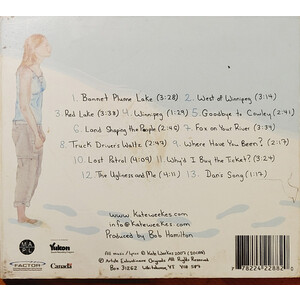 1. Bonnet Plume Lake (3:28) 2. West of Winnipeg (3:14)
3. Red Lake (3:38) 4. Winnipeg (1:29) 5. Goodbye to Cowley (2:41)
6. Land Shaping the People (2:45) 7. Fox on Your River (3:39)
8. Truck Driver's Waltz (2:43) 9. Where Have You Been? (2:17)
10. Lost Patrol (4:09) 11. Why'd I Buy the Ticket? (3:24)
12. The Ugliness and Me (4:11) 13. Dan's Song (1:17)
www.kateweekes.com
info@kateweekes.com
Produced by Bob Hamilton
All music / lyrics © Kate Weekes 2007 (SOCAN)
All Rights Reserved
Box 31262 Whitehorse, YT Y1A 5P7
FACTOR
Yukon
Canada
7 78224 22882 0